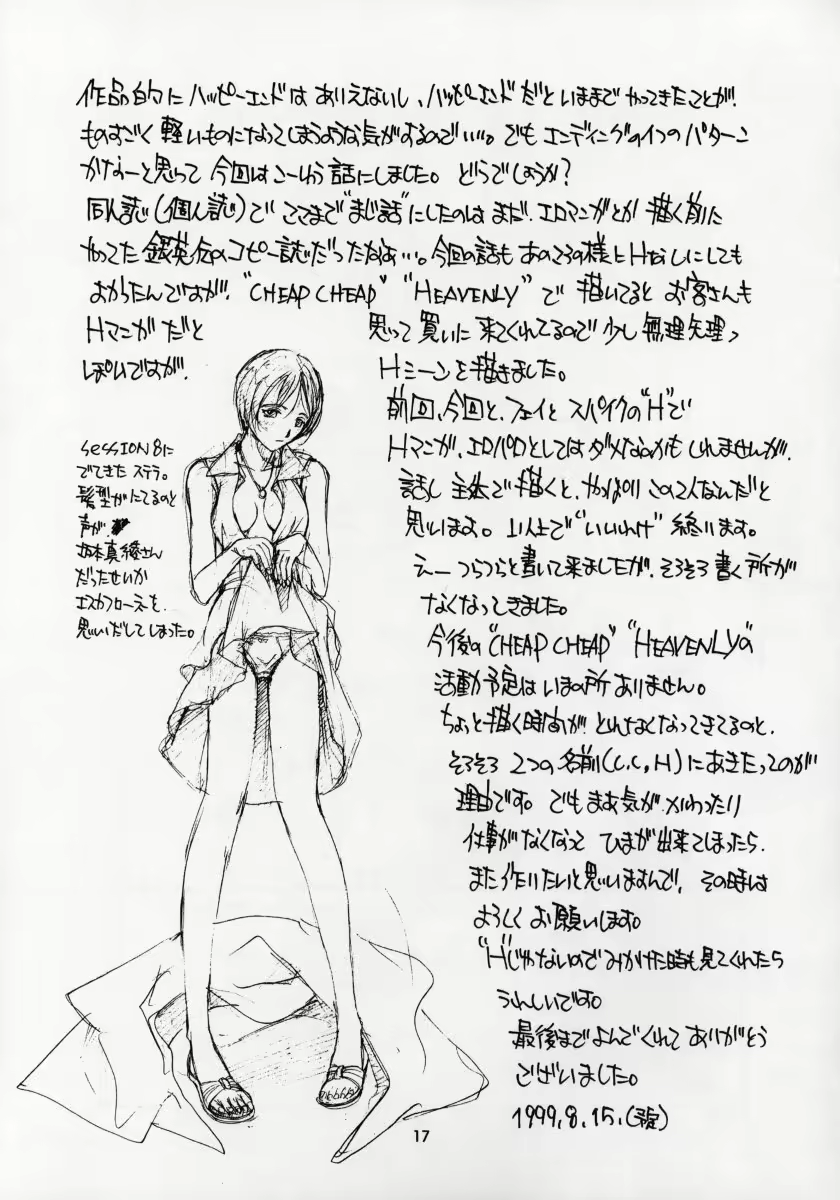 作品的にハッピーエンドはありえないし、ハッピーエンドだといままでやってきたことが、
ものすごく軽いものになってしまうような気がするので…。でもエンディングの1つのパターン
かなーと思って今回はこーいう話にしました。どうでしょうか?
同人誌(個人誌)でここまで"まじ話"にしたのはまだ、エロマンガとか描く前に
やってた銀英伝のコピー誌だったかなぁ…。今回の話もあのころの様にHなしにしても
よかったんですが、"CHEAP CHEAP" "HEAVENLY"で描いてるとお客さんも
Hマンガだと思って買いに来てくれてるので少し無理矢理っ
ぽいですが、Hシーンを描きました。
前回、今回と、フェイとスパイクの"H"で
Hマンガ、エロパロとしてはダメなのかもしれませんが、
話し主体で描くと、やっぱりこの2人なんだと
思います。以上で"いいわけ"終ります。
えーつらつらと書いて来ましたが、そろそろ書く所が
なくなってきました。
今後の"CHEAP CHEAP" "HEAVENLY"の
活動予定はいまの所ありません。
ちょっと描く時間がとれなくなってきてるのと、
そろそろ2つの名前(C.C,H)にあきたってのが
理由です。でもまぁ気がかわったり
仕事がなくなってひまが出来てしまったら、
また作りたいと思いますんで、その時は
よろしくお願いします。
"H"じゃないのでみかけた時も見てくれたら
うれしいです。
最後までよんでくれてありがとう
ございました。
1999.8.15.
SESSION 8に
でてきたステラ。
髪型がにてるのと
声が、
坂本真綾さん
だったせいか
エスカフローネを
思いだしてしまった。
17